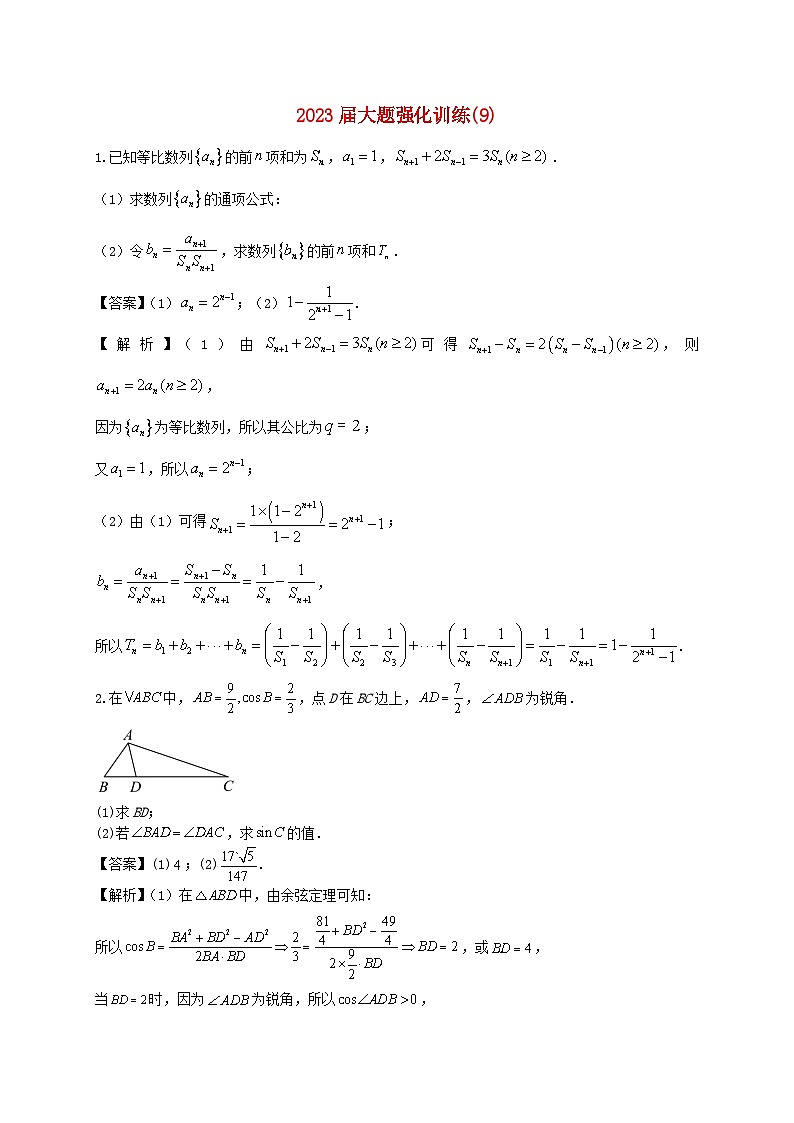 2023 届大题强化训练(9)
1.已知等比数列{aₙ}的前n项和为Sₙ，a₁=1，Sₙ₊₁+2Sₙ₋₁=3Sₙ(n≥2)．
(1)求数列{aₙ}的通项公式:
(2)令bₙ=aₙ₊₁/(SₙSₙ₊₁)，求数列{bₙ}的前n项和Tₙ．
【答案】(1)aₙ=2ⁿ⁻¹；(2)1−1/(2ⁿ⁺¹−1)．
【解析】(1)由Sₙ₊₁+2Sₙ₋₁=3Sₙ(n≥2)可得Sₙ₊₁−Sₙ=2(Sₙ−Sₙ₋₁)(n≥2)，则
aₙ₊₁=2aₙ(n≥2)，
因为{aₙ}为等比数列，所以其公比为q=2；
又a₁=1，所以aₙ=2ⁿ⁻¹；
(2)由(1)可得Sₙ₊₁=(1×(1−2ⁿ⁺¹))/(1−2)=2ⁿ⁺¹−1；
bₙ=aₙ₊₁/(SₙSₙ₊₁)=(Sₙ₊₁−Sₙ)/(SₙSₙ₊₁)=1/Sₙ−1/Sₙ₊₁，
所以Tₙ=b₁+b₂+⋯+bₙ=(1/S₁−1/S₂)+(1/S₂−1/S₃)+⋯+(1/Sₙ−1/Sₙ₊₁)=1/S₁−1/Sₙ₊₁=1−1/(2ⁿ⁺¹−1)．
2.在VABC中，AB=9/2,cosB=2/3，点D在BC边上，AD=7/2，∠ADB为锐角．
A
B D C
(1)求BD；
(2)若∠BAD=∠DAC，求sinC的值．
【答案】(1)4；(2)17√5/147．
【解析】(1)在△ABD中，由余弦定理可知：
所以cosB=(BA²+BD²−AD²)/(2BA·BD)⇒2/3=(81/4+BD²−49/4)/(2×9/2·BD)⇒BD=2，或BD=4，
当BD=2时，因为∠ADB为锐角，所以cos∠ADB>0，